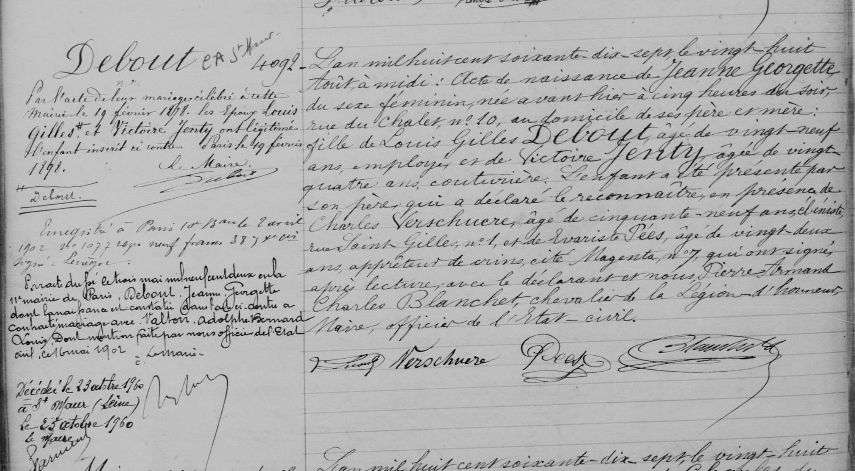 Debout
4092
Par acte de leur mariage célébré à cette
Mairie le 19 février 1898. les époux Louis
Gilles # et Victoire Jenty ont légitimé
l'enfant inscrit ci contre. Paris le 19 février
1898. Le Maire
# Debout.
Enregistré à Paris 10e Bau le 2 avril
1902 neuf francs 38
signé
le trois mai mil neuf cent deux en la
11e mairie de Paris, Debout, Jeanne Georgette
dont la naissance est constatée dans l'acte ci-contre a
contracté mariage avec Adolphe Bernard
Louis. Dont mention faite par nous officier de l'Etat
civil, ce 16 mai 1902
Décédée le 23 octobre 1960
à St Maur (Seine)
le 25 octobre 1960
le Maire
L'an mil huit cent soixante-dix-sept, le vingt-huit
Août, à midi : Acte de naissance de Jeanne Georgette
du sexe féminin, née avant hier à cinq heures du soir,
rue du Chalet no 10, au domicile de ses père et mère;
fille de Louis Gilles Debout, âgé de vingt-neuf
ans, employé, et de Victoire Jenty, âgée de vingt
quatre ans, couturière. L'enfant a été présenté par
son père, qui a déclaré le reconnaître, en présence de
Charles Verschuere, âgé de cinquante-neuf ans, ébéniste,
rue Saint Gilles, no 1, et de Evariste Pées, âgé de vingt-deux
ans, apprêteur de crins, cité Magenta, no 7, qui ont signé
après lecture, avec le déclarant et nous, Pierre Armand
Charles Blanchet, chevalier de la Légion-d'honneur,
Maire, officier de l'Etat-civil.
Verschuere Pées Blanchet
L'an mil huit cent soixante-dix-sept, le vingt-huit